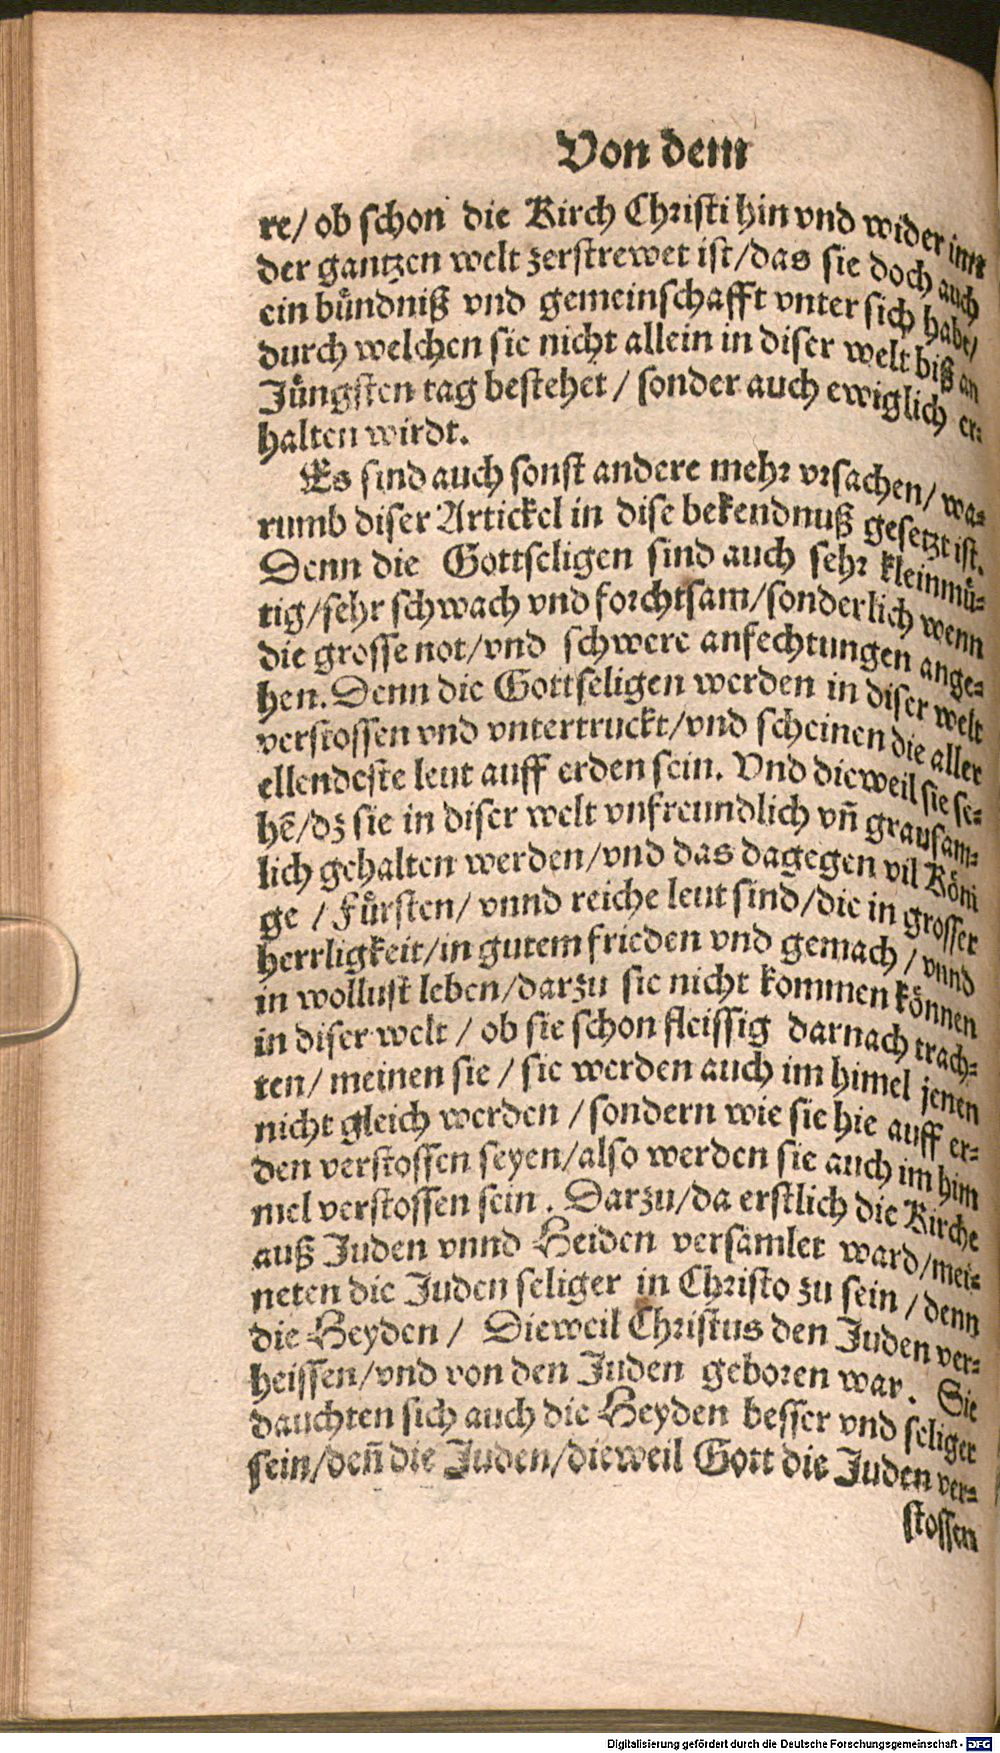 Von dem
re/ ob schon die Kirch Christi hin vnd wider inn
der gantzen welt zerstrewet ist/das sie doch auch
ein bůndniß vnd gemeinschafft vnter sich habe/
durch welchen sie nicht allein in diser welt biß an
Jůngsten tag bestehet / sonder auch ewiglich er⸗
halten wirdt.
Es sind auch sonst andere mehr vrsachen/ wa⸗
rumb diser Artickel in dise bekendnuß gesetzt ist.
Denn die Gottseligen sind auch sehr kleinmů⸗
tig/sehr schwach vnd forchtsam/sonderlich wenn
die grosse not/vnd schwere anfechtungen ange⸗
hen. Denn die Gottseligen werden in diser welt
verstossen vnd vntertruckt/vnd scheinen die aller
ellendeste leut auff erden sein. Vnd dieweil sie se⸗
hē/dz sie in diser welt vnfreundlich vn̄ grausam⸗
lich gehalten werden/vnd das dagegen vil Kőni
ge / Fůrsten/ vnnd reiche leut sind/die in grosser
herrligkeit/in gutem frieden vnd gemach / vnnd
in wollust leben/darzu sie nicht kommen kőnnen
in diser welt / ob sie schon fleissig darnach trach⸗
ten/ meinen sie / sie werden auch im himel jenen
nicht gleich werden / sondern wie sie hie auff er⸗
den verstossen seyen/also werden sie auch im him
mel verstossen sein . Darzu/da erstlich die Kirche
auß Juden vnnd Heiden versamlet ward/mei⸗
neten die Juden seliger in Christo zu sein / denn
die Heyden / Dieweil Christus den Juden ver⸗
heissen/vnd von den Juden geboren war . Sie
dauchten sich auch die Heyden besser vnd seliger
sein/den̄ die Juden/dieweil Gott die Juden ver⸗
stossen
Digitalisierung gefördert durch die Deutsche Forschungsgemeinschaft - DFG